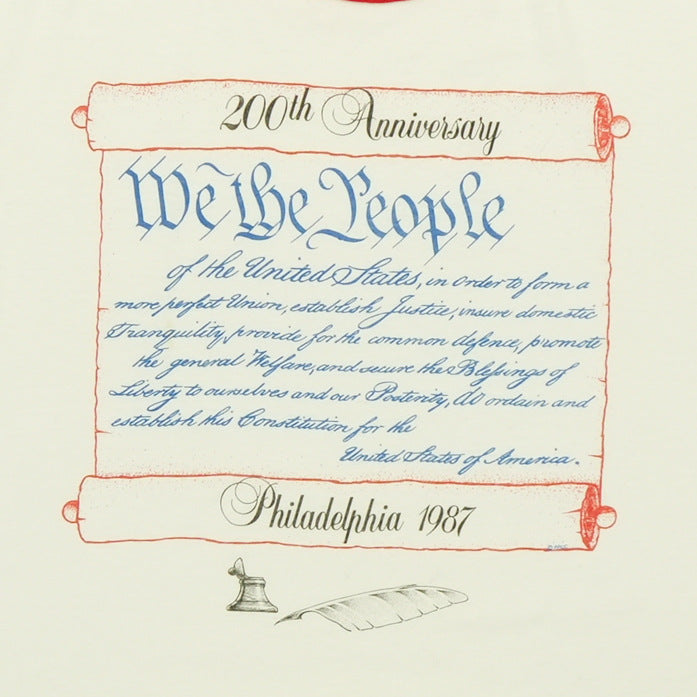 200th Anniversary
We the People
of the United States, in order to form a
more perfect Union, establish Justice, insure domestic
Tranquility, provide for the common defence, promote
the general Welfare, and secure the Blessings of
Liberty to ourselves and our Posterity, do ordain and
establish this Constitution for the
United States of America.
Philadelphia 1987